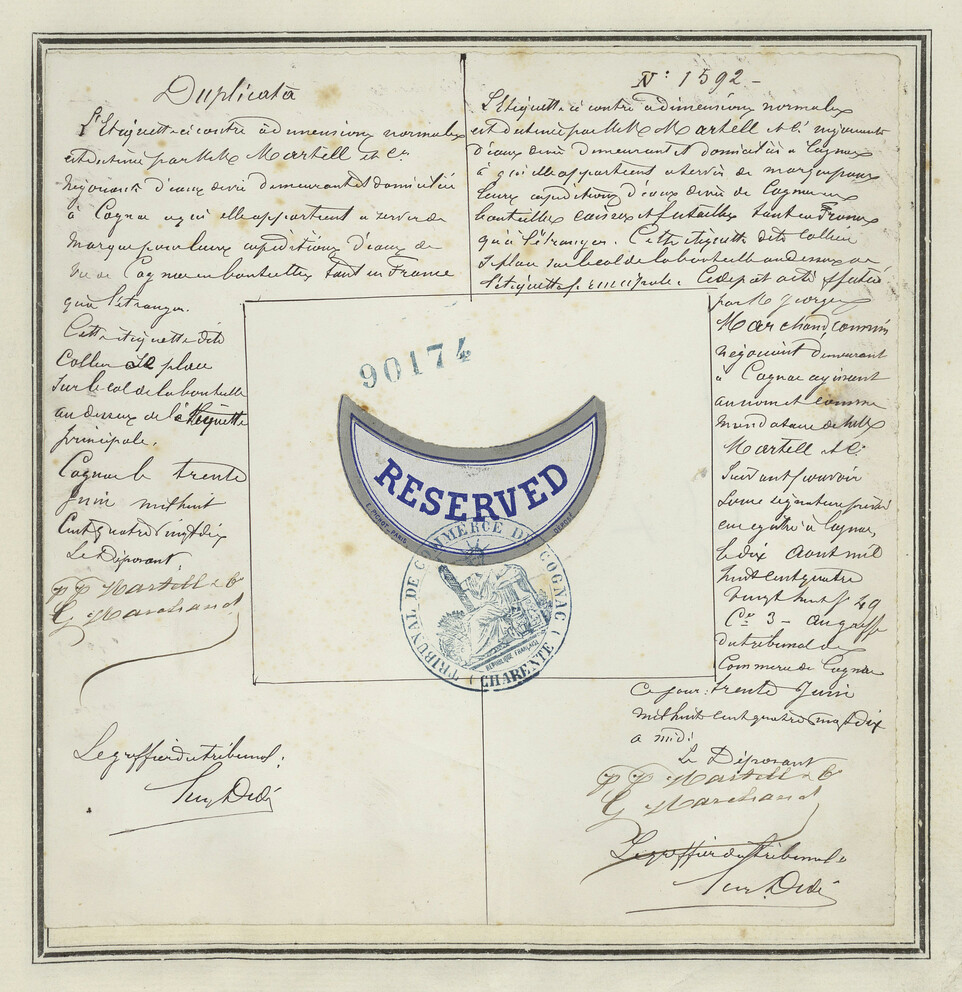 Duplicata
L'Etiquette ci contre à dimensions normales
est destinée par M M Martell et Cie
Négociants d'eaux de vie demeurant et domiciliés
à Cognac a qui elle appartient a servir de
marque pour leurs expéditions d'eaux de
vie de Cognac en bouteilles tant en France
qu'à l'étranger.
Cette étiquette dite
Collier se place
sur le col de la bouteille
au dessus de l'étiquette
principale.
Cognac le trente
Juin mil huit
Cent quatre vingt dix
Le Déposant,
P P Martell & Co
G Marchand
Le greffier du tribunal:
N° 1592 -
L'Etiquette ci contre à dimensions normales
est destinée par M M Martell et Cie négociants
d'eaux de vie demeurant et domiciliés à Cognac
à qui elle appartient a servir de marque pour
leurs expéditions d'eaux de vie de Cognac en
bouteilles caisses et futailles tant en France
qu'à l'étranger. Cette étiquette dite Collier
se place sur le col de la bouteille au dessus de
l'étiquette principale. Ce dépôt a été effectué
par M Georges
Marchand, commis
négociant demeurant
à Cognac agissant
au nom et comme
mandataire de MM
Martell et Cie
suivant pouvoir
sous signature privée
enregistré à Cognac,
le dix Août mil
huit cent quatre
vingt huit fo 49
Ce 3 - au greffe
du tribunal de
Commerce de Cognac
Ce jour: trente Juin
mil huit cent quatre vingt dix
a midi
Le Déposant
P P Martell & Co
G Marchand
Le greffier du tribunal
90174
RESERVED
PARIS
DÉPOSÉ
TRIBUNAL DE COMMERCE DE COGNAC
REPUBLIQUE FRANÇAISE
(CHARENTE)